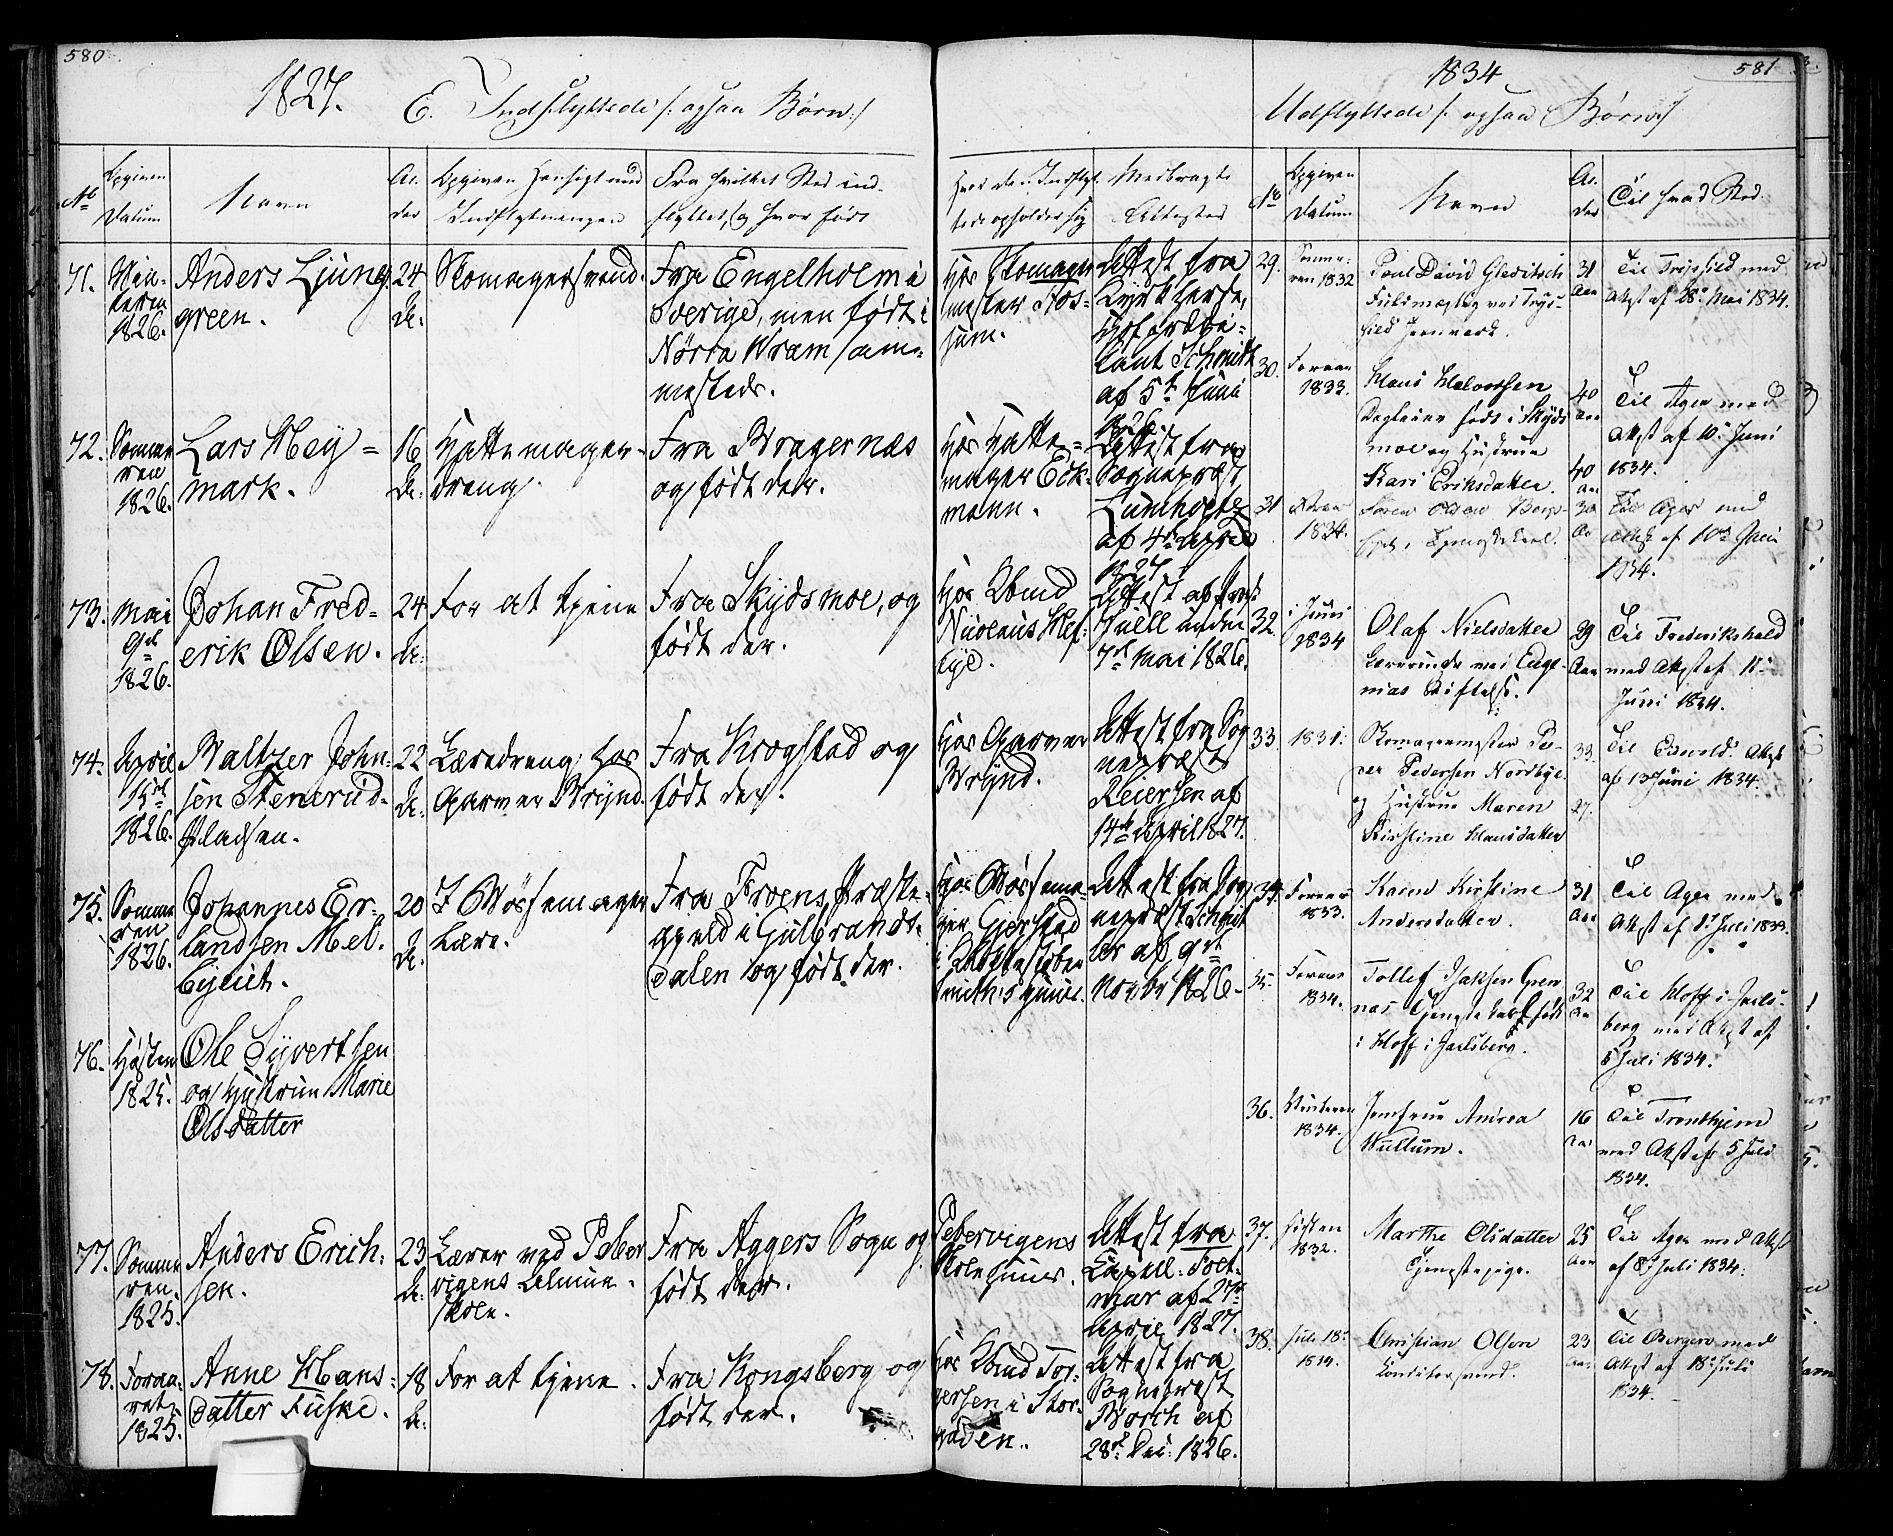 580
1827.
E. Indflyttede /: ogsaa Børn :/
No
Opgiven Datum
Navn
Al-
der
Opgiven Hensigt med
Indflytningen
Fra hvilket Sted ind-
flyttet, og hvor født
Hvor den Indflyt-
tede opholder sig
Medbragte
Attester
71.
Vin-
teren
1826.
Anders Ljung
green.
24
Aar
Skomagersvend.
Fra Engelholm i
Sverige, men født i
Nørra Wram sam-
mesteds.
Hos Skomager
mester Ros-
sum.
Attest fra
Kyrkherre,
Schmidt
af 5te Juni
1826.
72.
Somme
ren
1826.
Lars Mey-
mark.
16
Aar
Hattemager-
dreng.
Fra Bragernæs
og født der.
Hos Hatte-
mager Eck-
mann.
Attest fra
Sognepræst
Lumholtz
af 4de April
1827
73.
Mai
9de
1826.
Johan Fred-
erik Olsen.
24
Aar
For at tjene
Fra Skydsmoe, og
født der.
Hos Kbmd
Nicolaus
Attest af Prost
under
7de Mai 1826.
74.
April
15de
1826.
Baltzer John-
sen Stenerud-
Pladsen.
22
Aar
Læredreng hos
Garver Brynd.
Fra Krogstad og
født der.
Hos Garver
Brynd.
Attest fra Sog
nepræst
Reiersen af
14de April 1827.
75.
Somme
ren
1826.
Johannes Er-
landsen Mel-
byeiet.
20
Aar
I Bøssemager
Lære.
Fra Froens Præste-
gjeld i Gulbrands-
dalen og født der.
Hos Bøssema
ger Gjerstad
Smiths Huus.
Attest fra Sog
nepræst
af 9de
Novbr 1826.
76.
Høsten
1825.
Ole Syvertsen
og Hustrue Marie
Olsdatter
77.
Somme
ren
1825.
Anders Erich-
sen.
23
Aar
Lærer ved Peber
vigens Almue-
skole.
Fra Aggers Sogn og
født der.
Pebervigens
Skolehuus.
Attest fra
Capell. Folt-
mar af 27de
April 1827.
78.
Foraa-
ret
1825.
Anne Hans-
datter Fuske.
18
Aar
For at tjene.
Fra Kongsberg og
født der.
Hos Kbmd Tor-
gersen i Stor-
gaden.
Attest fra
Sognepræst
Borch af
28de Dec: 1826.
581
1834
Udflyttede /: ogsaa Børn :/
No
Opgiven
Datum
Navn
Al-
der
Til hvad Sted
29.
Somme-
ren 1832
Poul David Gleditsch
Fuldmægtig ved Frys-
fild Jernværk.
31
Aar
Til Frysfild med
Attest af 28de Mai 1834.
30.
Foraar
1833.
Hans Halvorsen
født i Skyds
moe og Hustrue
Kari Eriksdatter.
40
Aar
40
Aar
Til Ager med
Attest af 10de Juni
1834.
31
1834.
Søren Olsen
Tjenestekarl.
30
Ar
Til Ager med
Attest af 10de Juni
1834.
32.
i Juni
1834
Olaf Nielsdatter
Lærerinde ved Euge-
nias Stiftelse.
29
Aar
Til Frederikshald
med Attest af 11te
Juni 1834.
33.
1831.
Skomagermester Pe-
der Pedersen Nordbye
og Hustrue Maren
Kirstine Hansdatter
33.
27.
Til Eidsvold Attest
af 13 Juni 1834.
34.
Foraar
1833.
Karen Kirstine
Andersdatter.
31
Aar
Til Ager med
Attest af 1te Juli 1834.
35.
Foraar
1834.
Tollef Isaksen Gren
næs Tjenestekarl født
i Hoff i Jarlsberg.
32
Aar
Til Hoff i Jarls-
berg med Attest af
5 Juli 1834.
36.
Vinteren
1834.
Jomfrue Andrea
Wullum.
16
Aar
Til Trondhjem
med Attest af 5 Juli
1834.
37.
Høsten
1832.
Marthe Olsdatter
Tjenestepige.
25
Aar
Til Ager med Attest
af 8de Juli 1834.
38.
Juli 18de
1834.
Christian Olson
Conditorsvend.
23
Aar
Til Bergen med
Attest af 18de Juli
1834.